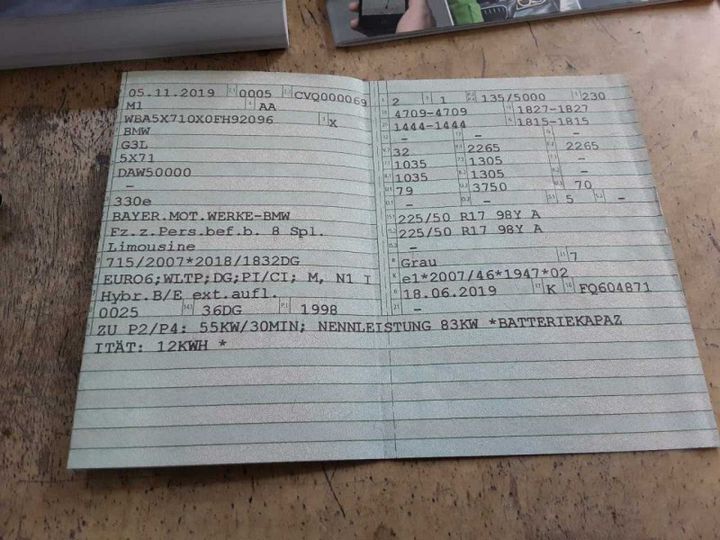 05.11.2019 0005 CVQ000069
M1 AA
WBA5X710X0FH92096 X
BMW
G3L
5X71
DAW50000
-
330e
BAYER.MOT.WERKE-BMW
Fz.z.Pers.bef.b. 8 Spl.
Limousine
715/2007*2018/1832DG
EURO6;WLTP;DG;PI/CI; M, N1 I
Hybr.B/E ext.aufl.
0025 36DG 1998
2 1 135/5000 230
4709-4709 1827-1827
1444-1444 1815-1815
- - -
32 2265 2265
1035 1305 -
1035 1305 -
79 3750 70
- - 5 -
225/50 R17 98Y A
225/50 R17 98Y A
-
Grau 7
e1*2007/46*1947*02
18.06.2019 K FQ604871
-
ZU P2/P4: 55KW/30MIN; NENNLEISTUNG 83KW *BATTERIEKAPAZ
ITÄT: 12KWH *